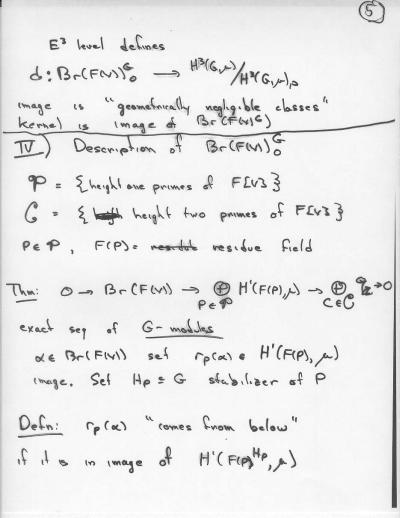 5
E³ level defines
d: Br(F(V))₀^G → H³(G,μ)/H³(G,μ)₀
image is "geometrically negligible classes"
Kernel is image of Br(F(V)^G)
IV) Description of Br(F(V))₀^G
P = {height one primes of F[V]}
C = {height two primes of F[V]}
P∈P, F(P) = residue field
Thm: 0 → Br(F(V)) → ⊕_{P∈P} H'(F(P),μ) → ⊕_{C∈C} → 0
exact seq of G-modules
α∈Br(F(V)) set r_P(α) ∈ H'(F(P),μ)
image. Set H_P ⊆ G stabilizer of P
Defn: r_P(α) "comes from below"
if it is in image of H'(F(P)^{H_P},μ)